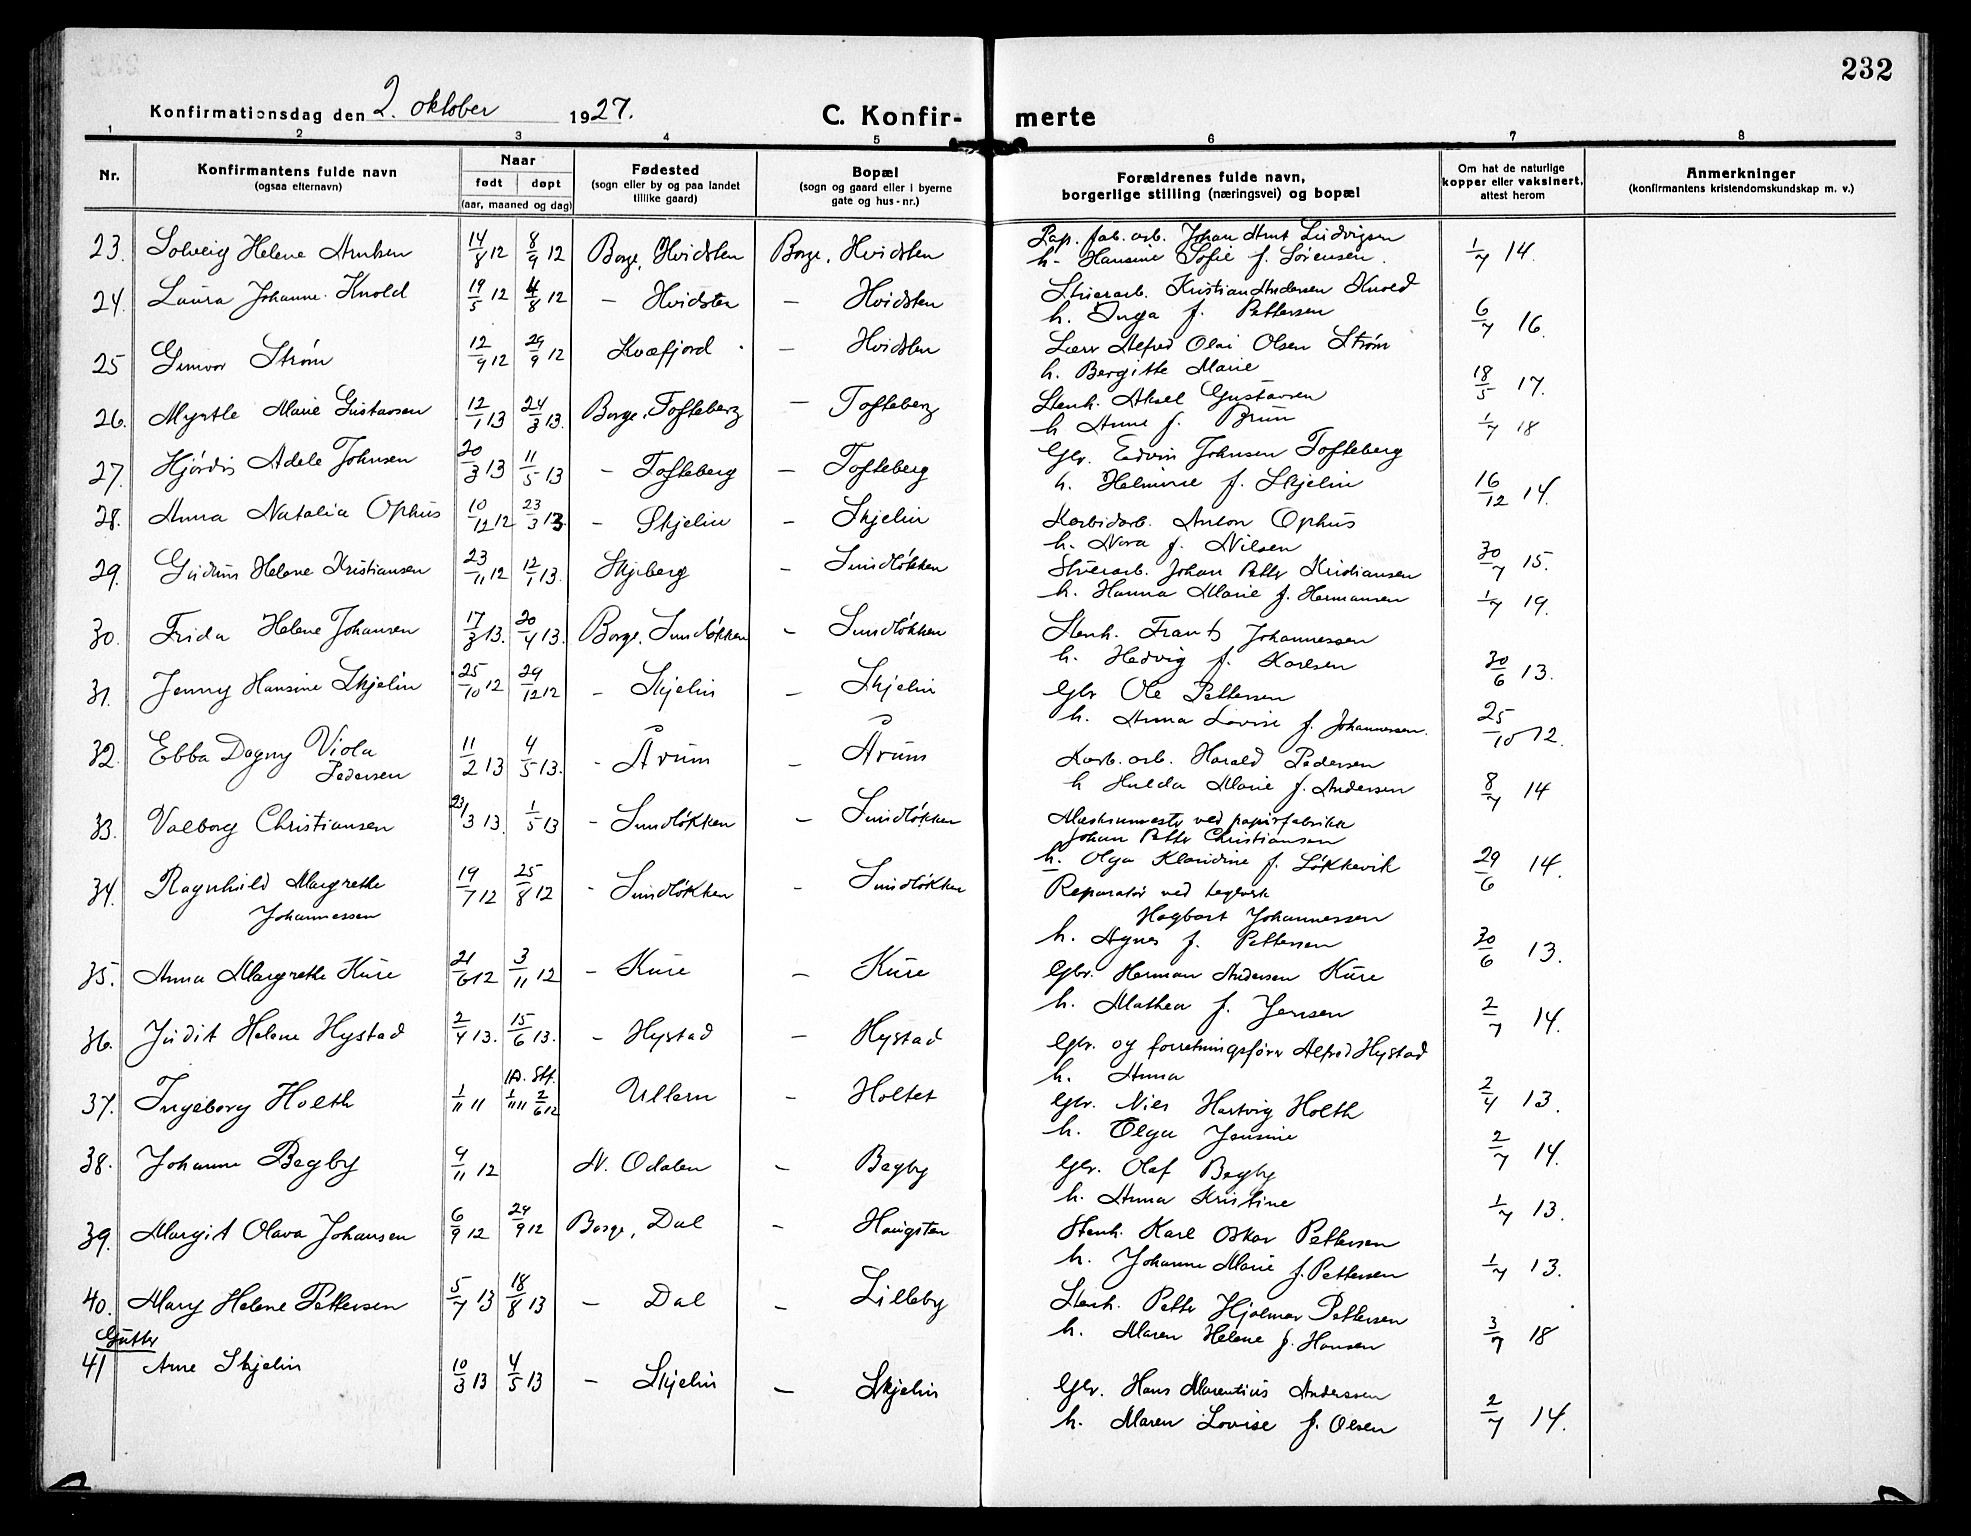 232
Konfirmationsdag den 2. oktober 1927.
C. Konfir- merte
1 2 3 4 5 6 7 8
Nr. Konfirmantens fulde navn (ogsaa efternavn) Naar født døpt (aar, maaned og dag) Fødested (sogn eller by og paa landet tillike gaard) Bopæl (sogn og gaard eller i byerne gate og hus-nr.) Forældrenes fulde navn, borgerlige stilling (næringsvei) og bopæl Om hat de naturlige kopper eller vaksinert, attest herom Anmerkninger (konfirmantens kristendomskundskap m. v.)
23. Solveig Helene Arntsen 14/8 12 8/9 12 Borge, Hvidsten Borge, Hvidsten Pap. fab. arb. Johan Arnt Ludvigsen
h. Hansine Sofie f. Sørensen. 1/7 14.
24. Laura Johanne Knold 19/5 12 4/8 12 – Hvidsten – Hvidsten Stuerarb. Kristian Andersen Knold
h. Inga f. Pettersen 6/7 16.
25 Gunvor Strøm 12/9 12 29/9 12 Kvæfjord – Hvidsten Lærer Alfred Olai Olsen Strøm
h. Bergitte Marie 18/5 17.
26. Myrtle Marie Gustavsen 12/1 13 24/3 13. Borge, Tofteberg – Tofteberg Stenh. Aksel Gustavsen
h. Anne f. Brun 1/7 18
27. Hjørdis Adele Johnsen 20/3 13 11/5 13 – Tofteberg – Tofteberg Gbr. Edvin Johnsen Tofteberg
h. Helmine f. Skjelin 16/12 14.
28. Anna Natalia Ophus 10/12 12 23/3 13. – Skjelin – Skjelin Karbidarb. Anton Ophus
h. Nora f. Nilsen 30/7 15.
29. Gudrun Helene Kristiansen 23/11 12 12/1 13. Skjeberg – Sundløkken Stuerarb. Johan Petter Kristiansen
h. Hanna Marie f. Hermansen 1/7 19.
30. Frida Helene Johansen 17/3 13. 20/4 13. Borge, Sundløkken – Sundløkken Stenh. Frants Johannessen
h. Hedvig f. Karlsen 30/6 13.
31. Jenny Hansine Skjelin 25/10 12 29/12 12 – Skjelin – Skjelin Gbr Ole Pettersen
h. Anna Lovise f. Johannessen. 25/10 12.
32. Ebba Dagny Viola Pedersen 11/2 13 4/5 13. – Årum – Årum Karb. arb. Harald Pedersen
h Hulda Marie f. Andersen 8/7 14
33. Valborg Christiansen 23/3 13. 1/5 13 – Sundløkken – Sundløkken Maskinmester ved papirfabrikk
Johan Petter Christiansen
h. Olga Klaudine f. Løkkevik 29/6 14.
34. Ragnhild Margrethe Johannessen 19/7 12 25/8 12 – Sundløkken – Sundløkken Reparatør ved teglverk
Hagbart Johannessen
h. Agnes f. Pettersen 30/6 13.
35. Anna Margrethe Kure 21/6 12 3/11 12 – Kure – Kure Gbr. Herman Andersen Kure
h. Mathea f. Jensen 2/7 14.
36. Judit Helene Hystad 2/4 13. 15/6 13. – Hystad – Hystad Gbr. og forretningsfører Alfred Hystad
h. Anna 2/4 13.
37. Ingeborg Holth 1/11 11 1/11 11 2/6 12 Ullern – Holtet Gbr. Nils Hartvig Holth
h. Olga Jensine 2/7 14.
38. Johanne Begby 4/11 12 N. Odalen – Begby Gbr. Olaf Begby
h. Anna Kristine 1/7 13.
39. Margit Olava Johansen 6/9 12 29/9 12 Borge, Dal – Haugsten Stenh. Karl Oskar Pettersen
h. Johanne Marie f. Pettersen 1/7 13.
40. Mary Helene Pettersen 5/7 13 18/8 13 – Dal – Lilleby Stenh. Petter Hjalmar Pettersen
h. Maren Helene f. Hansen 3/7 18
Gutter
41 Arne Skjelin 10/3 13 4/5 13 – Skjelin – Skjelin Gbr. Hans Marentius Anderssen
h. Maren Lovise f. Olsen 2/7 14.